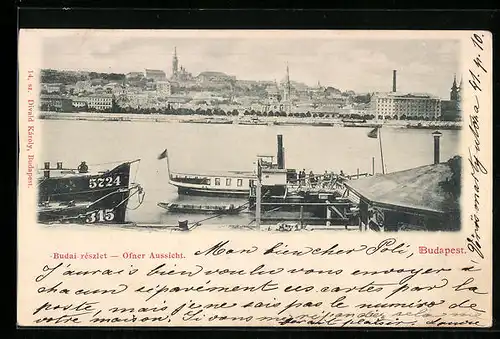 14. sz. Divald Károly, Budapest.
5724
315
Budai részlet — Ofner Aussicht.
Budapest.
Mon bien cher Poli,
J'aurais bien voulu vous envoyer à
chacun séparément ces cartes par la
poste, mais je ne sais pas le numéro de
votre maison. Si vous me
plaisir.